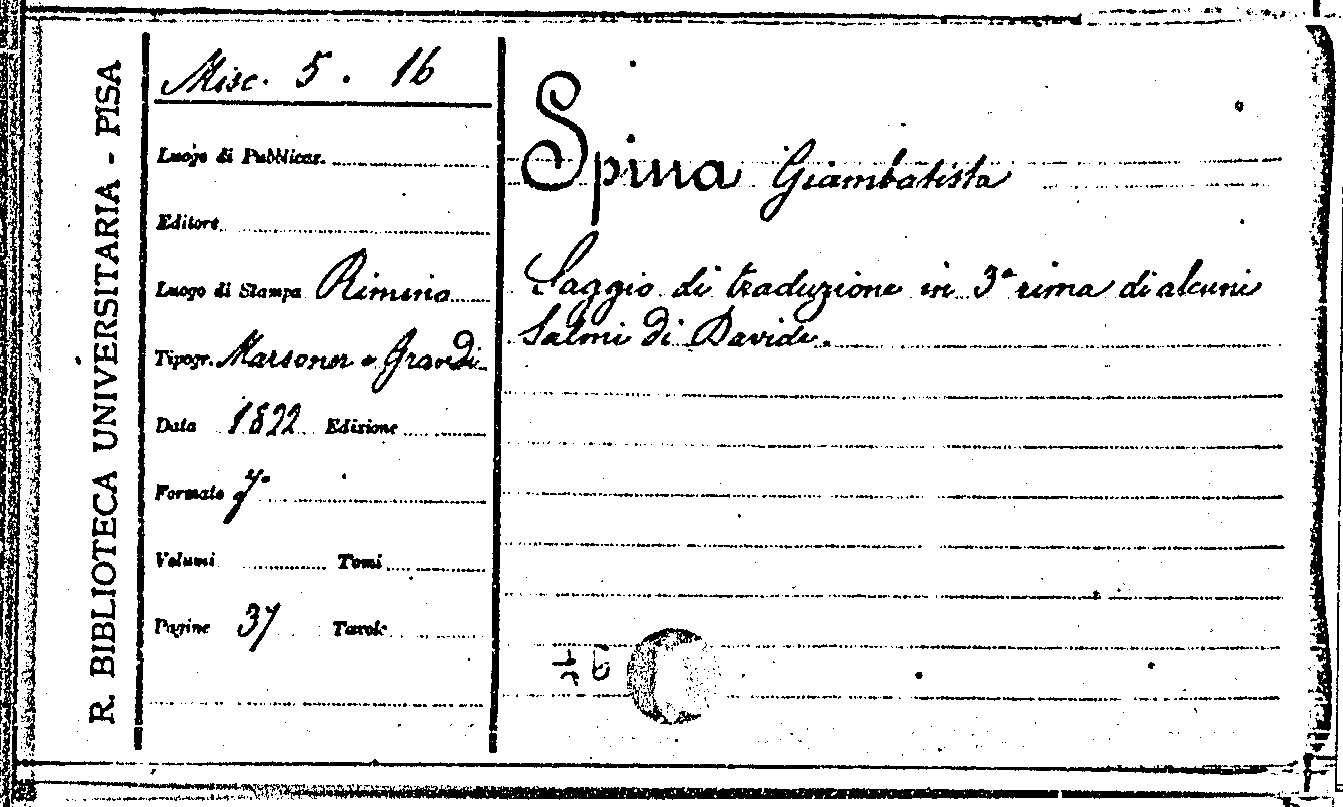 R. BIBLIOTECA UNIVERSITARIA - PISA
Misc. 5. 16
Luogo di Pubblicaz.
Editore
Luogo di Stampa Rimino
Tipogr. Marsoner e Grandi
Data 1822 Edizione
Formato
Volumi Tomi
Pagine 37 Tavole
Spina Giambatista
Saggio di traduzione in 3ª rima di alcuni
Salmi di Davide.